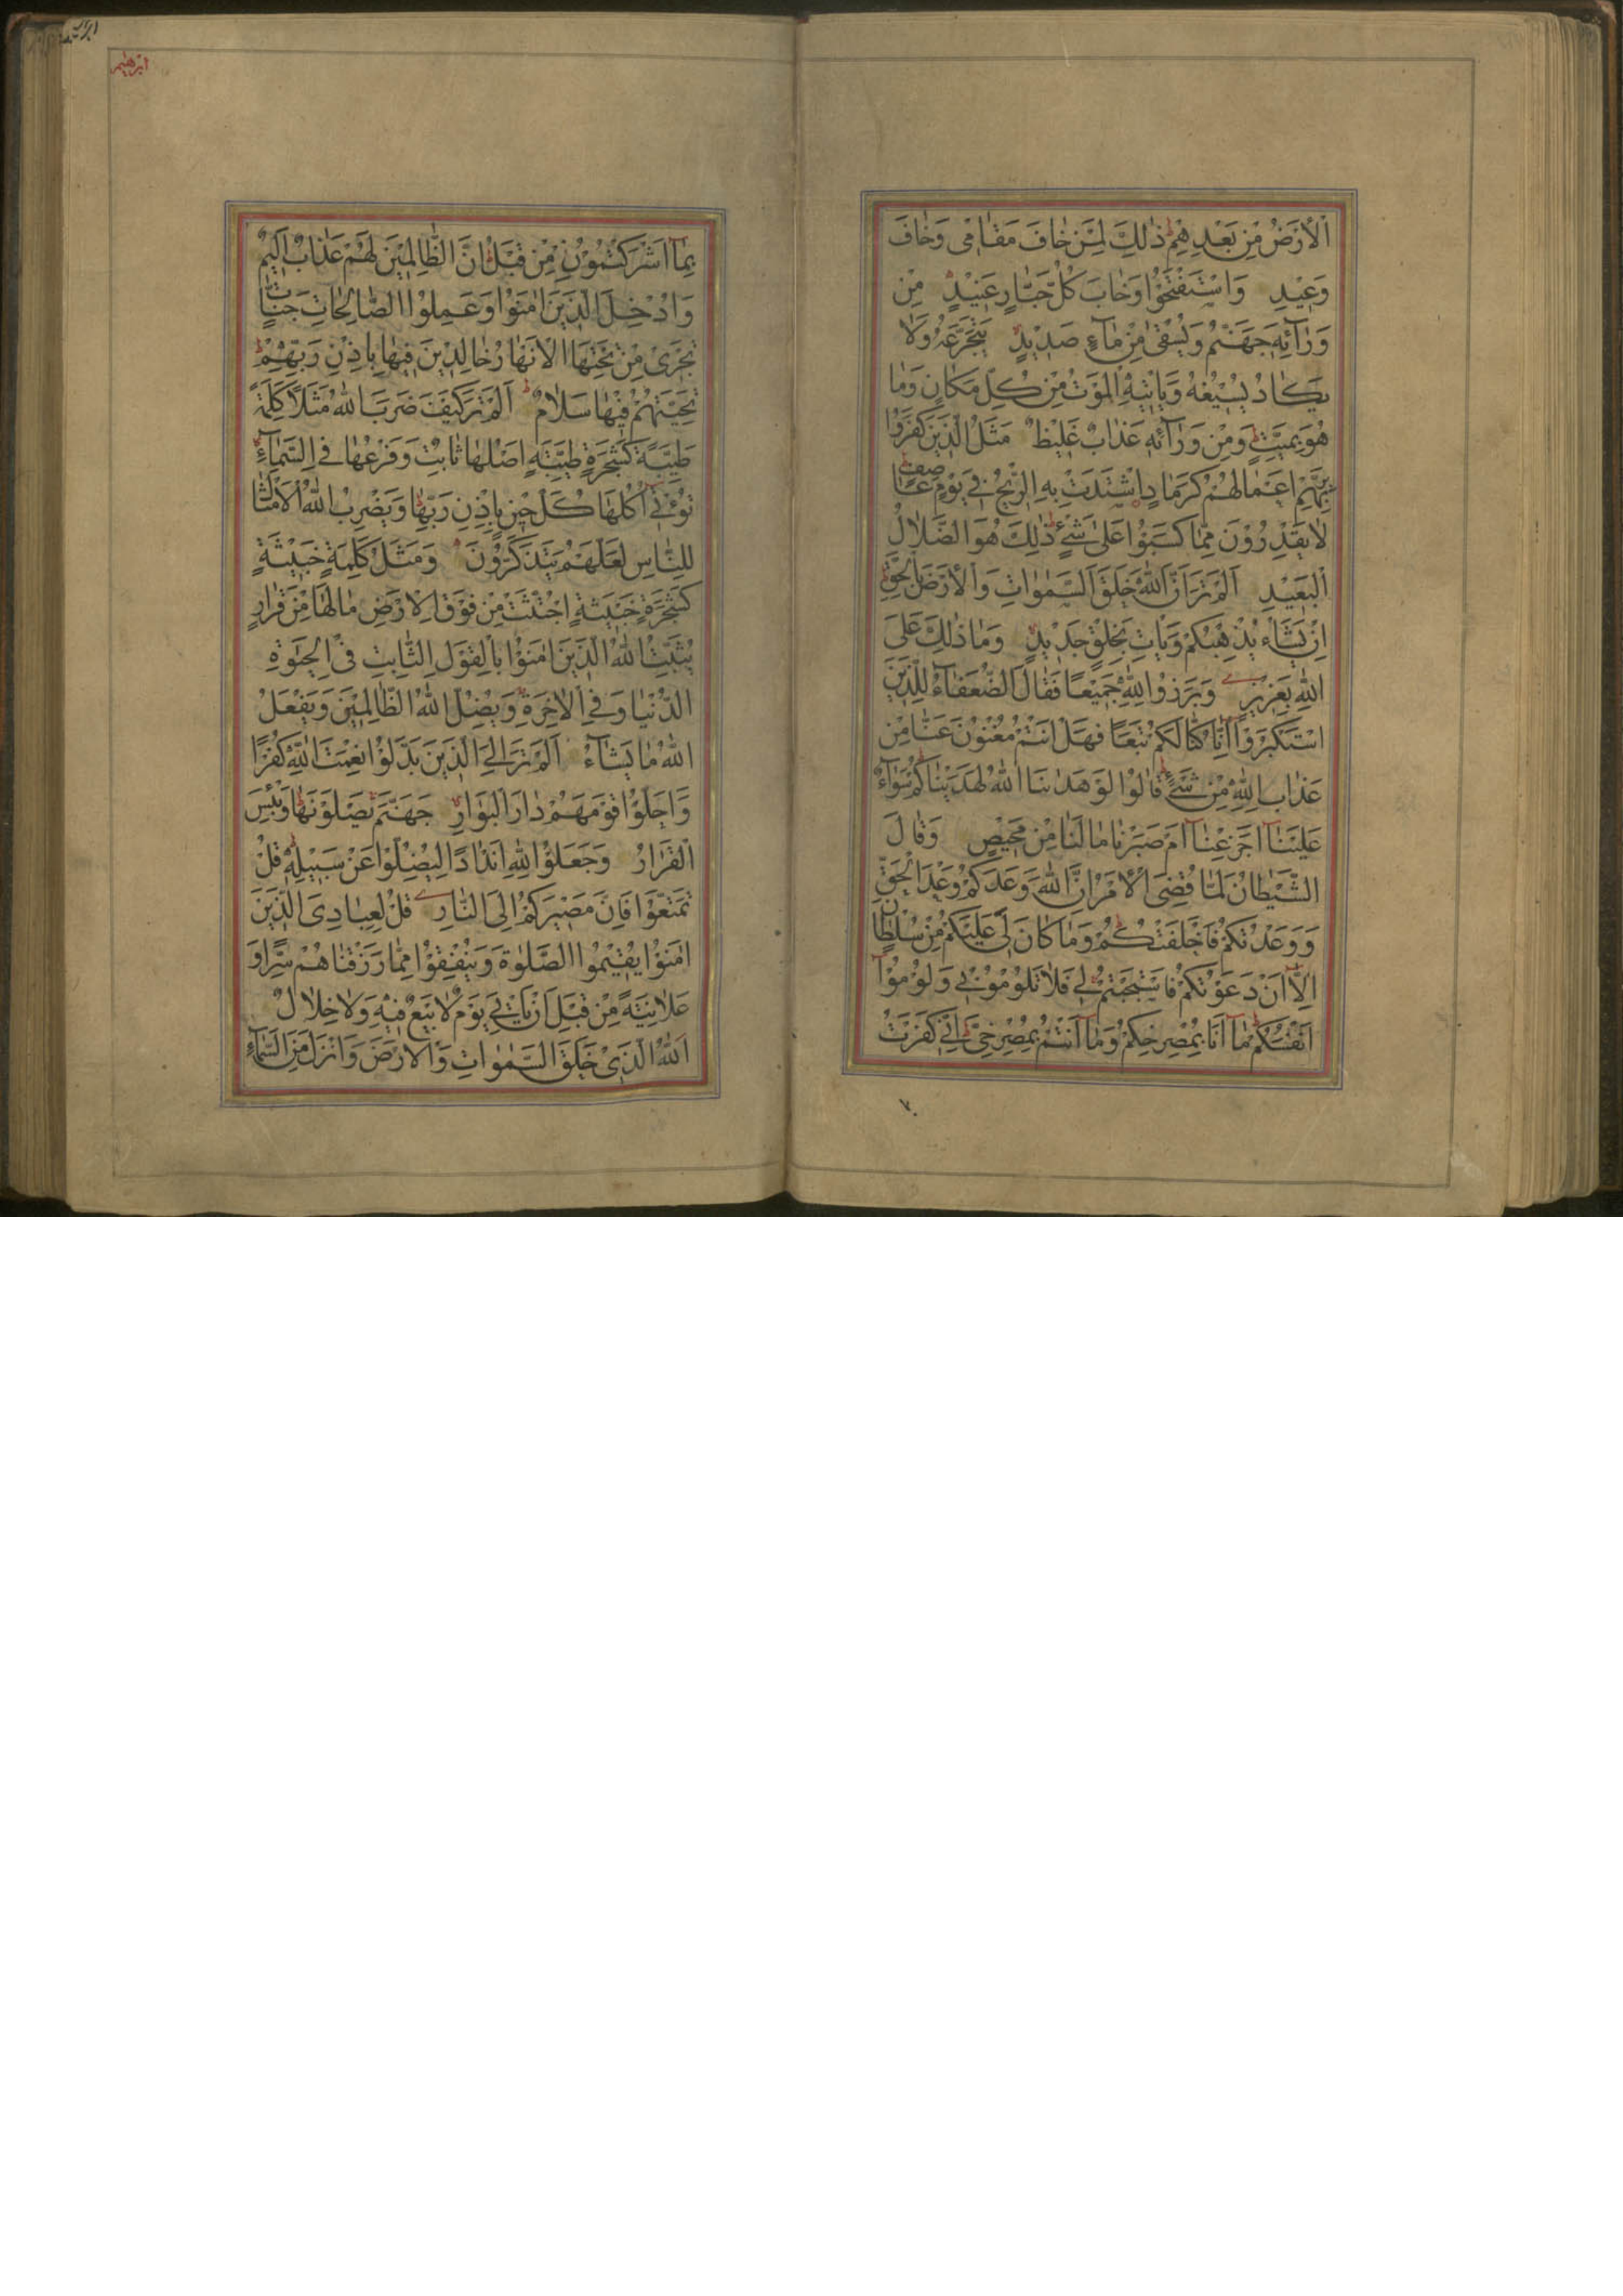 اَلْاَرْضَ مِنْ بَعْدِهِمْ ذٰلِكَ لِمَنْ خٰافَ مَقٰامٖى وَخٰافَ
وَعٖيْدِ وَاسْتَفْتَحُوْا وَخٰابَ كُلُّ جَبّٰارٍ عَنٖيْدٍ مِنْ
وَرٰٓائِهٖ جَهَنَّمُ وَيُسْقٰى مِنْ مٰٓاءٍ صَدٖيْدٍ يَتَجَرَّعُهُ وَلٰا
يَكٰادُ يُسٖيْغُهُ وَيَاْتٖيْهِ الْمَوْتُ مِنْ كُلِّ مَكٰانٍ وَمٰا
هُوَ بِمَيِّتٍ وَمِنْ وَرٰٓائِهٖ عَذٰابٌ غَلٖيْظٌ مَثَلُ الَّذٖيْنَ كَفَرُوْا
بِرَبِّهِمْ اَعْمٰالُهُمْ كَرَمٰادٍ اشْتَدَّتْ بِهِ الرّٖيْحُ فٖى يَوْمٍ عٰاصِفٍ
لٰا يَقْدِرُوْنَ مِمّٰا كَسَبُوْا عَلٰى شَىْءٍ ذٰلِكَ هُوَ الضَّلٰالُ
الْبَعٖيْدِ اَلَمْ تَرَ اَنَّ اللّٰهَ خَلَقَ السَّمٰوٰاتِ وَالْاَرْضَ بِالْحَقِّ
اِنْ يَشَاْءْ يُذْهِبْكُمْ وَيَاْتِ بِخَلْقٍ جَدٖيْدٍ وَمٰا ذٰلِكَ عَلَى
اللّٰهِ بِعَزٖيْزٍ وَبَرَزُوْا لِلّٰهِ جَمٖيْعًا فَقٰالَ الضُّعَفٰٓاءُ لِلَّذٖيْنَ
اسْتَكْبَرُوْٓا اِنّٰا كُنّٰا لَكُمْ تَبَعًا فَهَلْ اَنْتُمْ مُغْنُوْنَ عَنّٰا مِنْ
عَذٰابِ اللّٰهِ مِنْ شَىْءٍ قٰالُوْا لَوْ هَدٰىنَا اللّٰهُ لَهَدَيْنٰاكُمْ سَوٰٓاءٌ
عَلَيْنٰٓا اَجَزِعْنٰٓا اَمْ صَبَرْنٰا مٰا لَنٰا مِنْ مَحٖيْصٍ وَقٰالَ
الشَّيْطٰانُ لَمّٰا قُضِىَ الْاَمْرُ اِنَّ اللّٰهَ وَعَدَكُمْ وَعْدَ الْحَقِّ
وَوَعَدْتُكُمْ فَاَخْلَفْتُكُمْ وَمٰا كٰانَ لِىَ عَلَيْكُمْ مِنْ سُلْطٰانٍ
اِلّٰٓا اَنْ دَعَوْتُكُمْ فَاسْتَجَبْتُمْ لٖى فَلٰا تَلُوْمُوْنٖى وَلُوْمُوْٓا
اَنْفُسَكُمْ مٰٓا اَنَا بِمُصْرِخِكُمْ وَمٰٓا اَنْتُمْ بِمُصْرِخِىَّ اِنّٖى كَفَرْتُ
ابرهیم
بِمٰٓا اَشْرَكْتُمُوْنِ مِنْ قَبْلُ اِنَّ الظّٰالِمٖيْنَ لَهُمْ عَذٰابٌ اَلٖيْمٌ
وَاُدْخِلَ الَّذٖيْنَ اٰمَنُوْا وَعَمِلُوا الصّٰالِحٰاتِ جَنّٰاتٍ
تَجْرٖى مِنْ تَحْتِهَا الْاَنْهٰارُ خٰالِدٖيْنَ فٖيْهٰا بِاِذْنِ رَبِّهِمْ
تَحِيَّتُهُمْ فٖيْهٰا سَلٰامٌ اَلَمْ تَرَ كَيْفَ ضَرَبَ اللّٰهُ مَثَلًا كَلِمَةً
طَيِّبَةً كَشَجَرَةٍ طَيِّبَةٍ اَصْلُهٰا ثٰابِتٌ وَفَرْعُهٰا فِى السَّمٰٓاءِ
تُؤْتٖٓى اُكُلَهٰا كُلَّ حٖيْنٍ بِاِذْنِ رَبِّهٰا وَيَضْرِبُ اللّٰهُ الْاَمْثٰالَ
لِلنّٰاسِ لَعَلَّهُمْ يَتَذَكَّرُوْنَ وَمَثَلُ كَلِمَةٍ خَبٖيْثَةٍ
كَشَجَرَةٍ خَبٖيْثَةٍ اجْتُثَّتْ مِنْ فَوْقِ الْاَرْضِ مٰا لَهٰا مِنْ قَرٰارٍ
يُثَبِّتُ اللّٰهُ الَّذٖيْنَ اٰمَنُوْا بِالْقَوْلِ الثّٰابِتِ فِى الْحَيٰوةِ
الدُّنْيٰا وَفِى الْاٰخِرَةِ وَيُضِلُّ اللّٰهُ الظّٰالِمٖيْنَ وَيَفْعَلُ
اللّٰهُ مٰا يَشٰٓاءُ اَلَمْ تَرَ اِلَى الَّذٖيْنَ بَدَّلُوْا نِعْمَتَ اللّٰهِ كُفْرًا
وَاَحَلُّوْا قَوْمَهُمْ دٰارَ الْبَوٰارِ جَهَنَّمَ يَصْلَوْنَهٰا وَبِئْسَ
الْقَرٰارُ وَجَعَلُوْا لِلّٰهِ اَنْدٰادًا لِيُضِلُّوْا عَنْ سَبٖيْلِهٖ قُلْ
تَمَتَّعُوْا فَاِنَّ مَصٖيْرَكُمْ اِلَى النّٰارِ قُلْ لِعِبٰادِىَ الَّذٖيْنَ
اٰمَنُوْا يُقٖيْمُوا الصَّلٰوةَ وَيُنْفِقُوْا مِمّٰا رَزَقْنٰاهُمْ سِرًّا وَ
عَلٰانِيَةً مِنْ قَبْلِ اَنْ يَاْتِىَ يَوْمٌ لٰا بَيْعٌ فٖيْهِ وَلٰا خِلٰالٌ
اَللّٰهُ الَّذٖى خَلَقَ السَّمٰوٰاتِ وَالْاَرْضَ وَاَنْزَلَ مِنَ السَّمٰٓاءِ